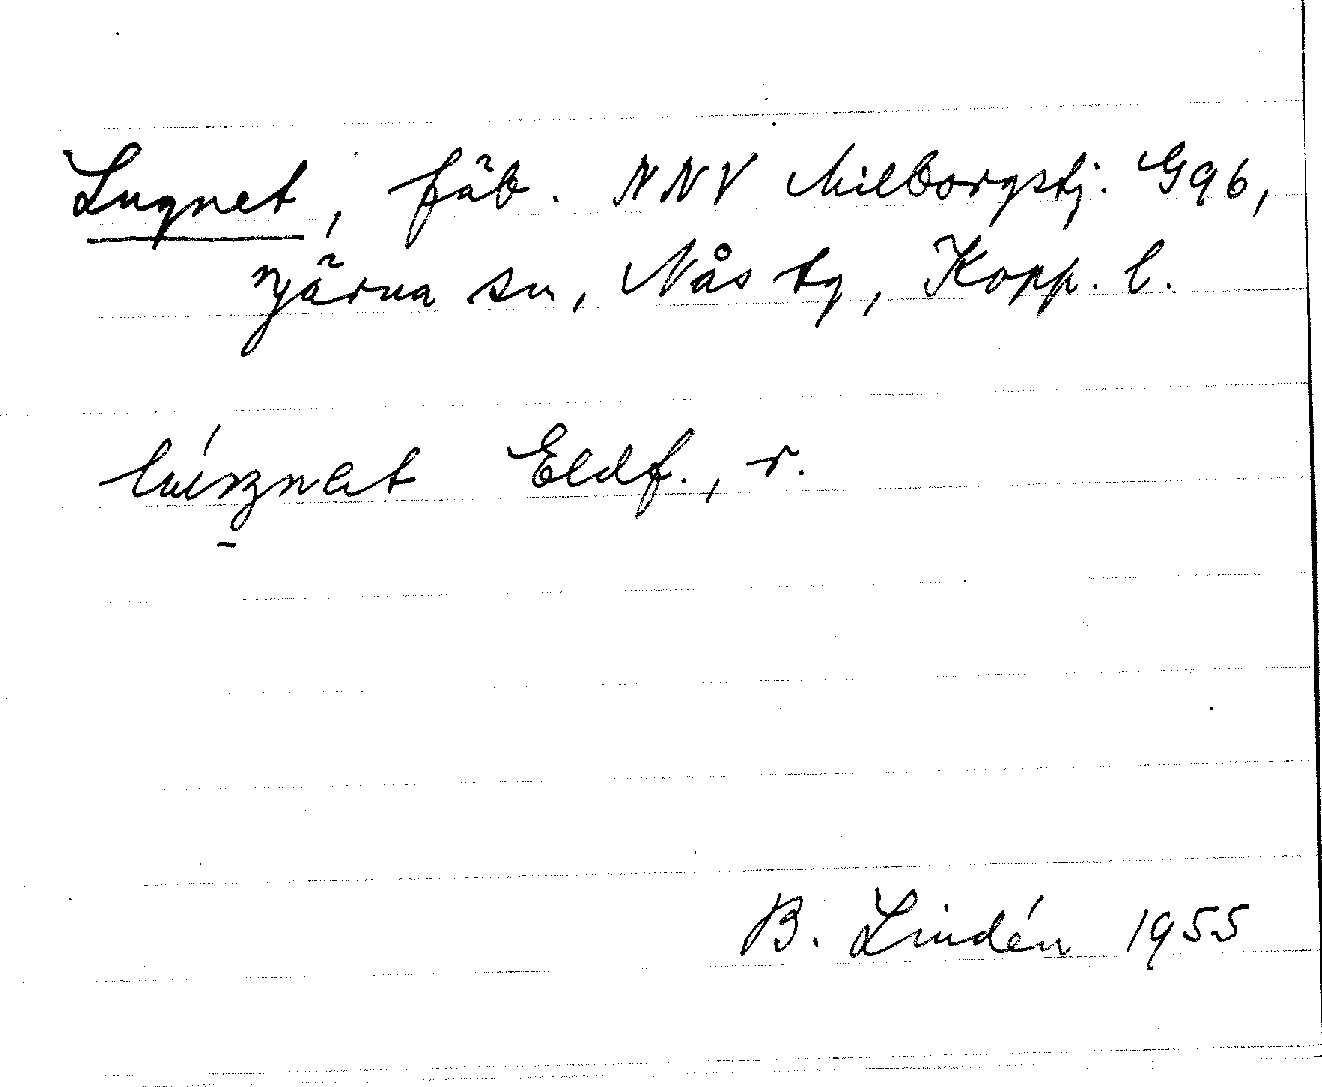 Lugnet, fäb. NNV Milborgstj. G96,
Järna sn, Nås tg, Kopp. l.
Eldf., r.
B. Lindén 1955